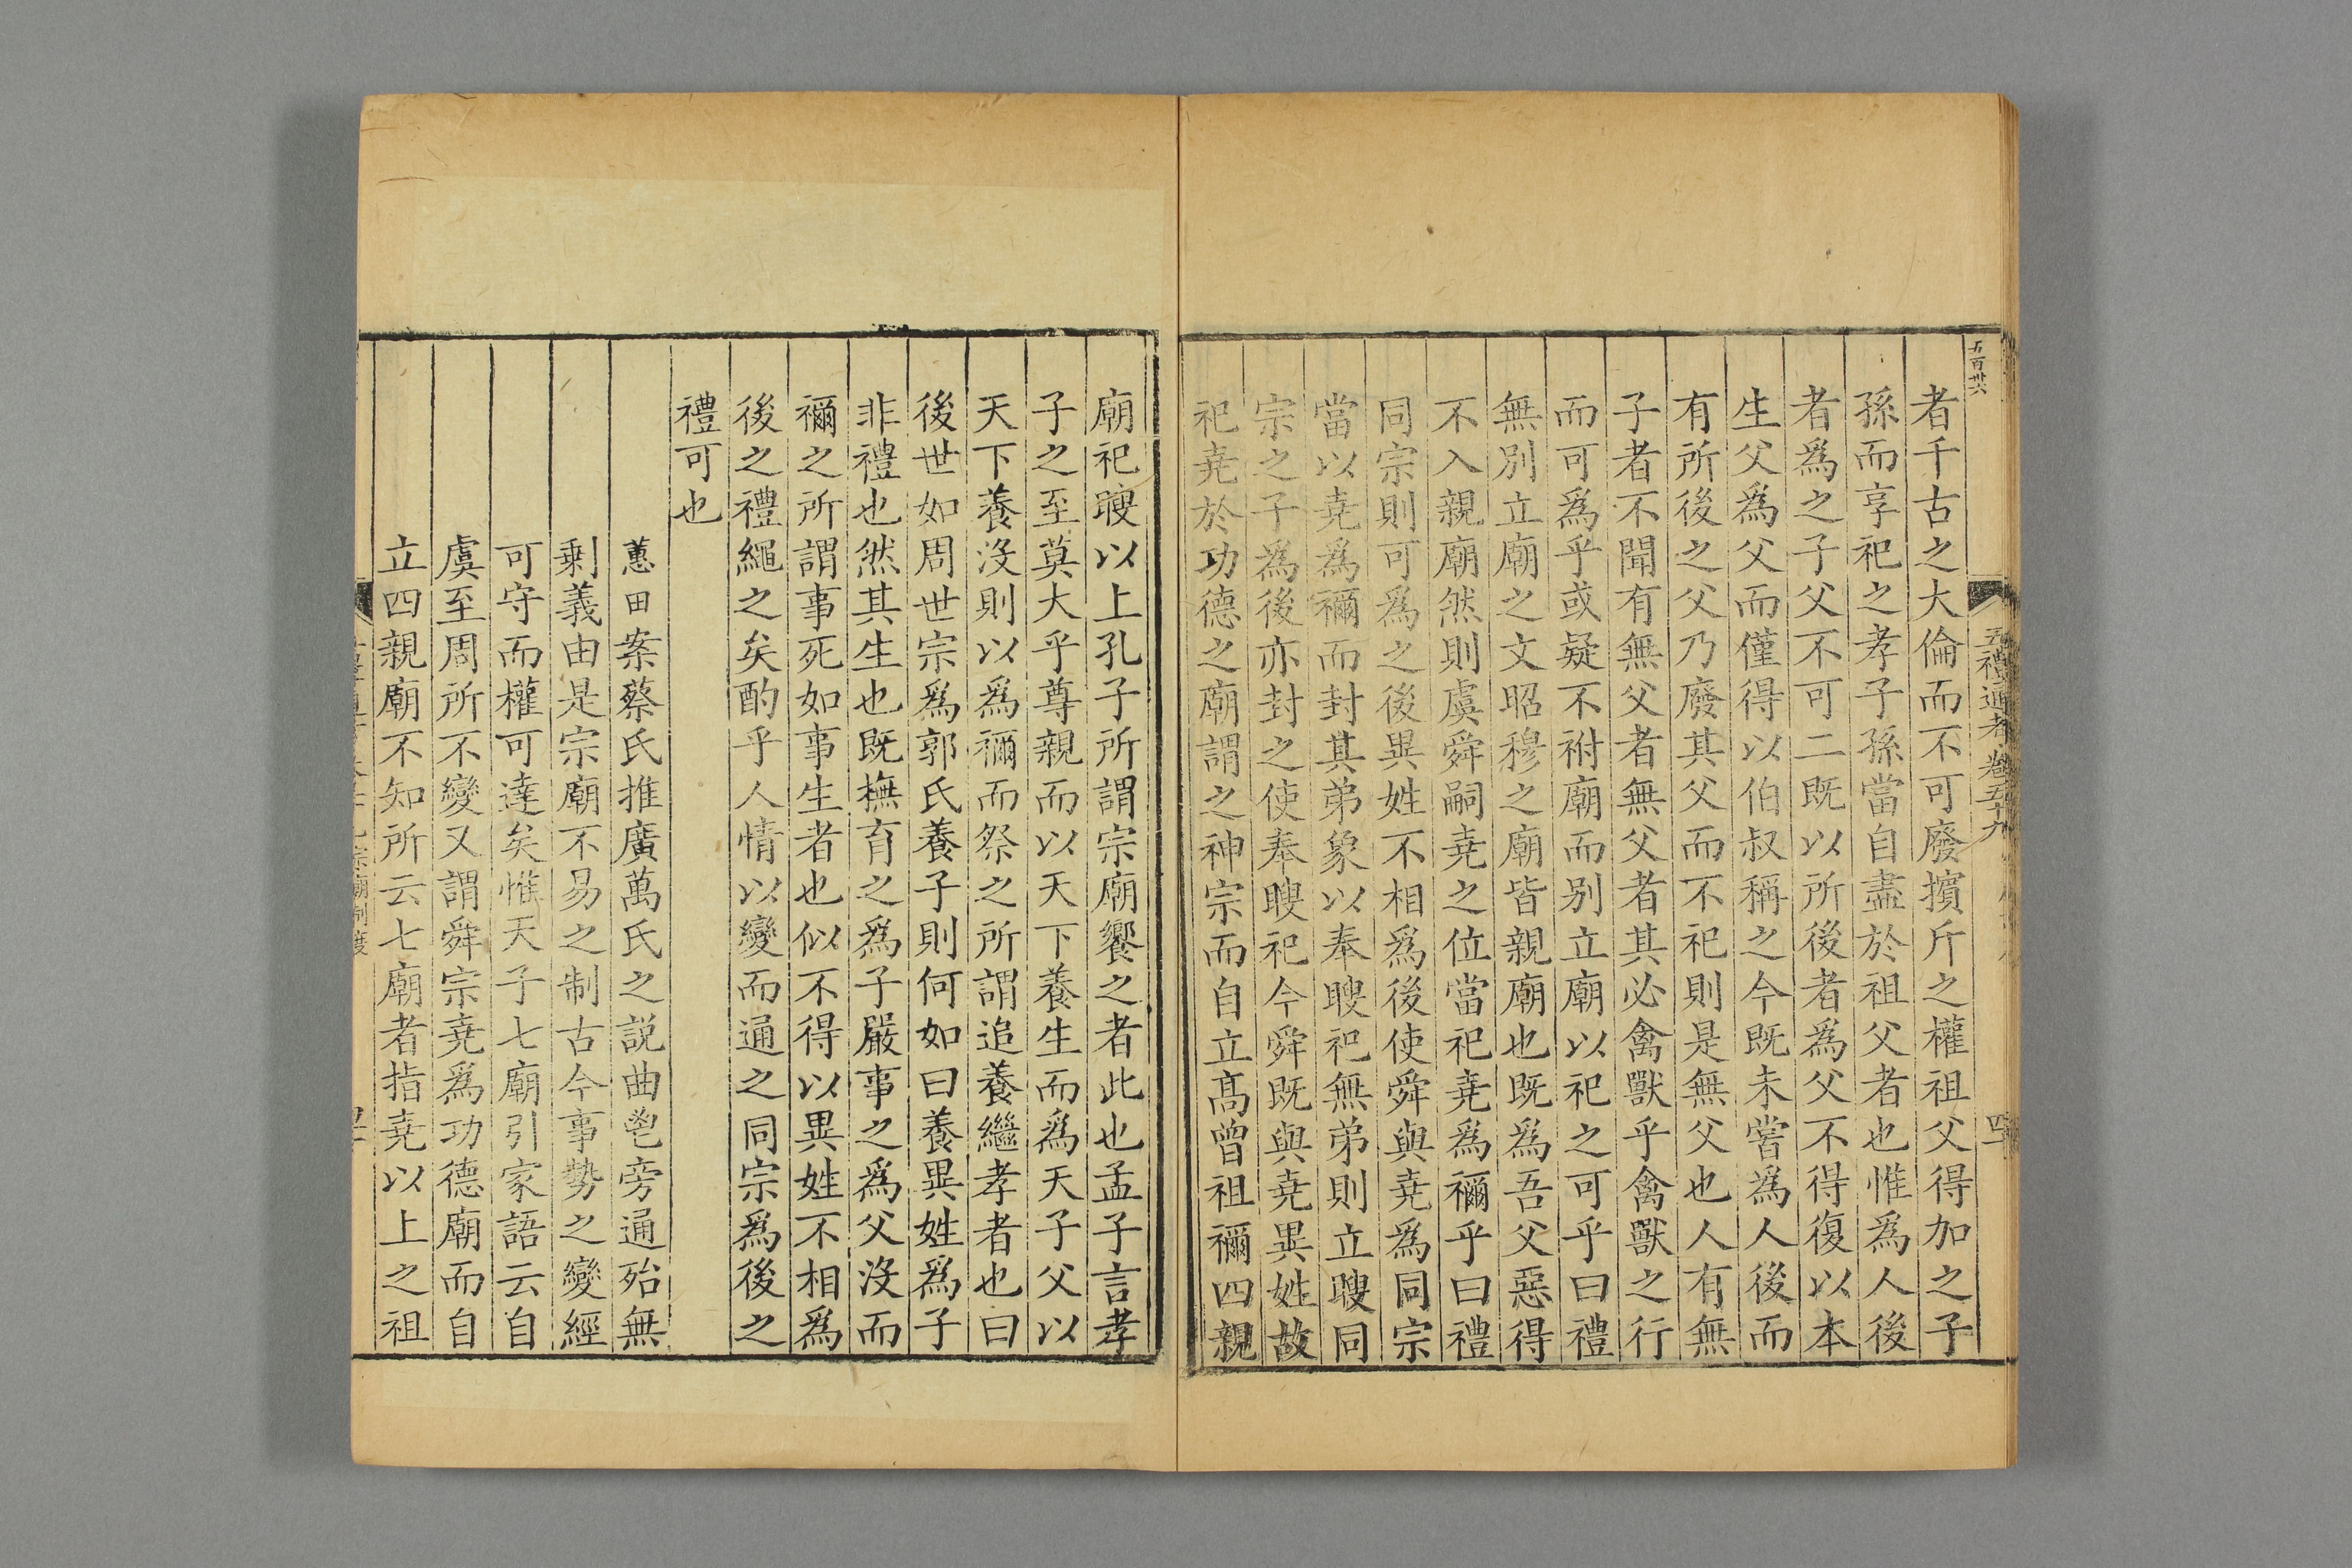 五百卅六
五禮通考 卷五十九
者千古之大倫而不可廢擯斥之權祖父得加之子
孫而享祀之孝子孫當自盡於祖父者也惟爲人後
者爲之子父不可二既以所後者爲父不得復以本
生父爲父而僅得以伯叔稱之今既未嘗爲人後而
有所後之父乃廢其父而不祀則是無父也人有無
子者不聞有無父者無父者其必禽獸乎禽獸之行
而可爲乎或疑不祔廟而别立廟以祀之可乎曰禮
無別立廟之文昭穆之廟皆親廟也既爲吾父惡得
不入親廟然則虞舜嗣堯之位當祀堯爲禰乎曰禮
同宗則可爲之後異姓不相爲後使舜與堯爲同宗
當以堯爲禰而封其弟象以奉瞍祀無弟則立瞍同
宗之子爲後亦封之使奉瞍祀今舜既與堯異姓故
祀堯於功德之廟謂之神宗而自立高曾祖禰四親
廟祀瞍以上孔子所謂宗廟饗之者此也孟子言孝
子之至莫大乎尊親而以天下養生而爲天子父以
天下養沒則以爲禰而祭之所謂追養繼孝者也曰
後世如周世宗爲郭氏養子則何如曰養異姓爲子
非禮也然其生也既撫育之爲子嚴事之爲父沒而
禰之所謂事死如事生者也似不得以異姓不相爲
後之禮繩之矣酌乎人情以變而通之同宗爲後之
禮可也
蕙田案蔡氏推廣萬氏之説曲鬯旁通殆無
剩義由是宗廟不易之制古今事勢之變經
可守而權可達矣惟天子七廟引家語云自
虞至周所不變又謂舜宗堯爲功德廟而自
立四親廟不知所云七廟者指堯以上之祖